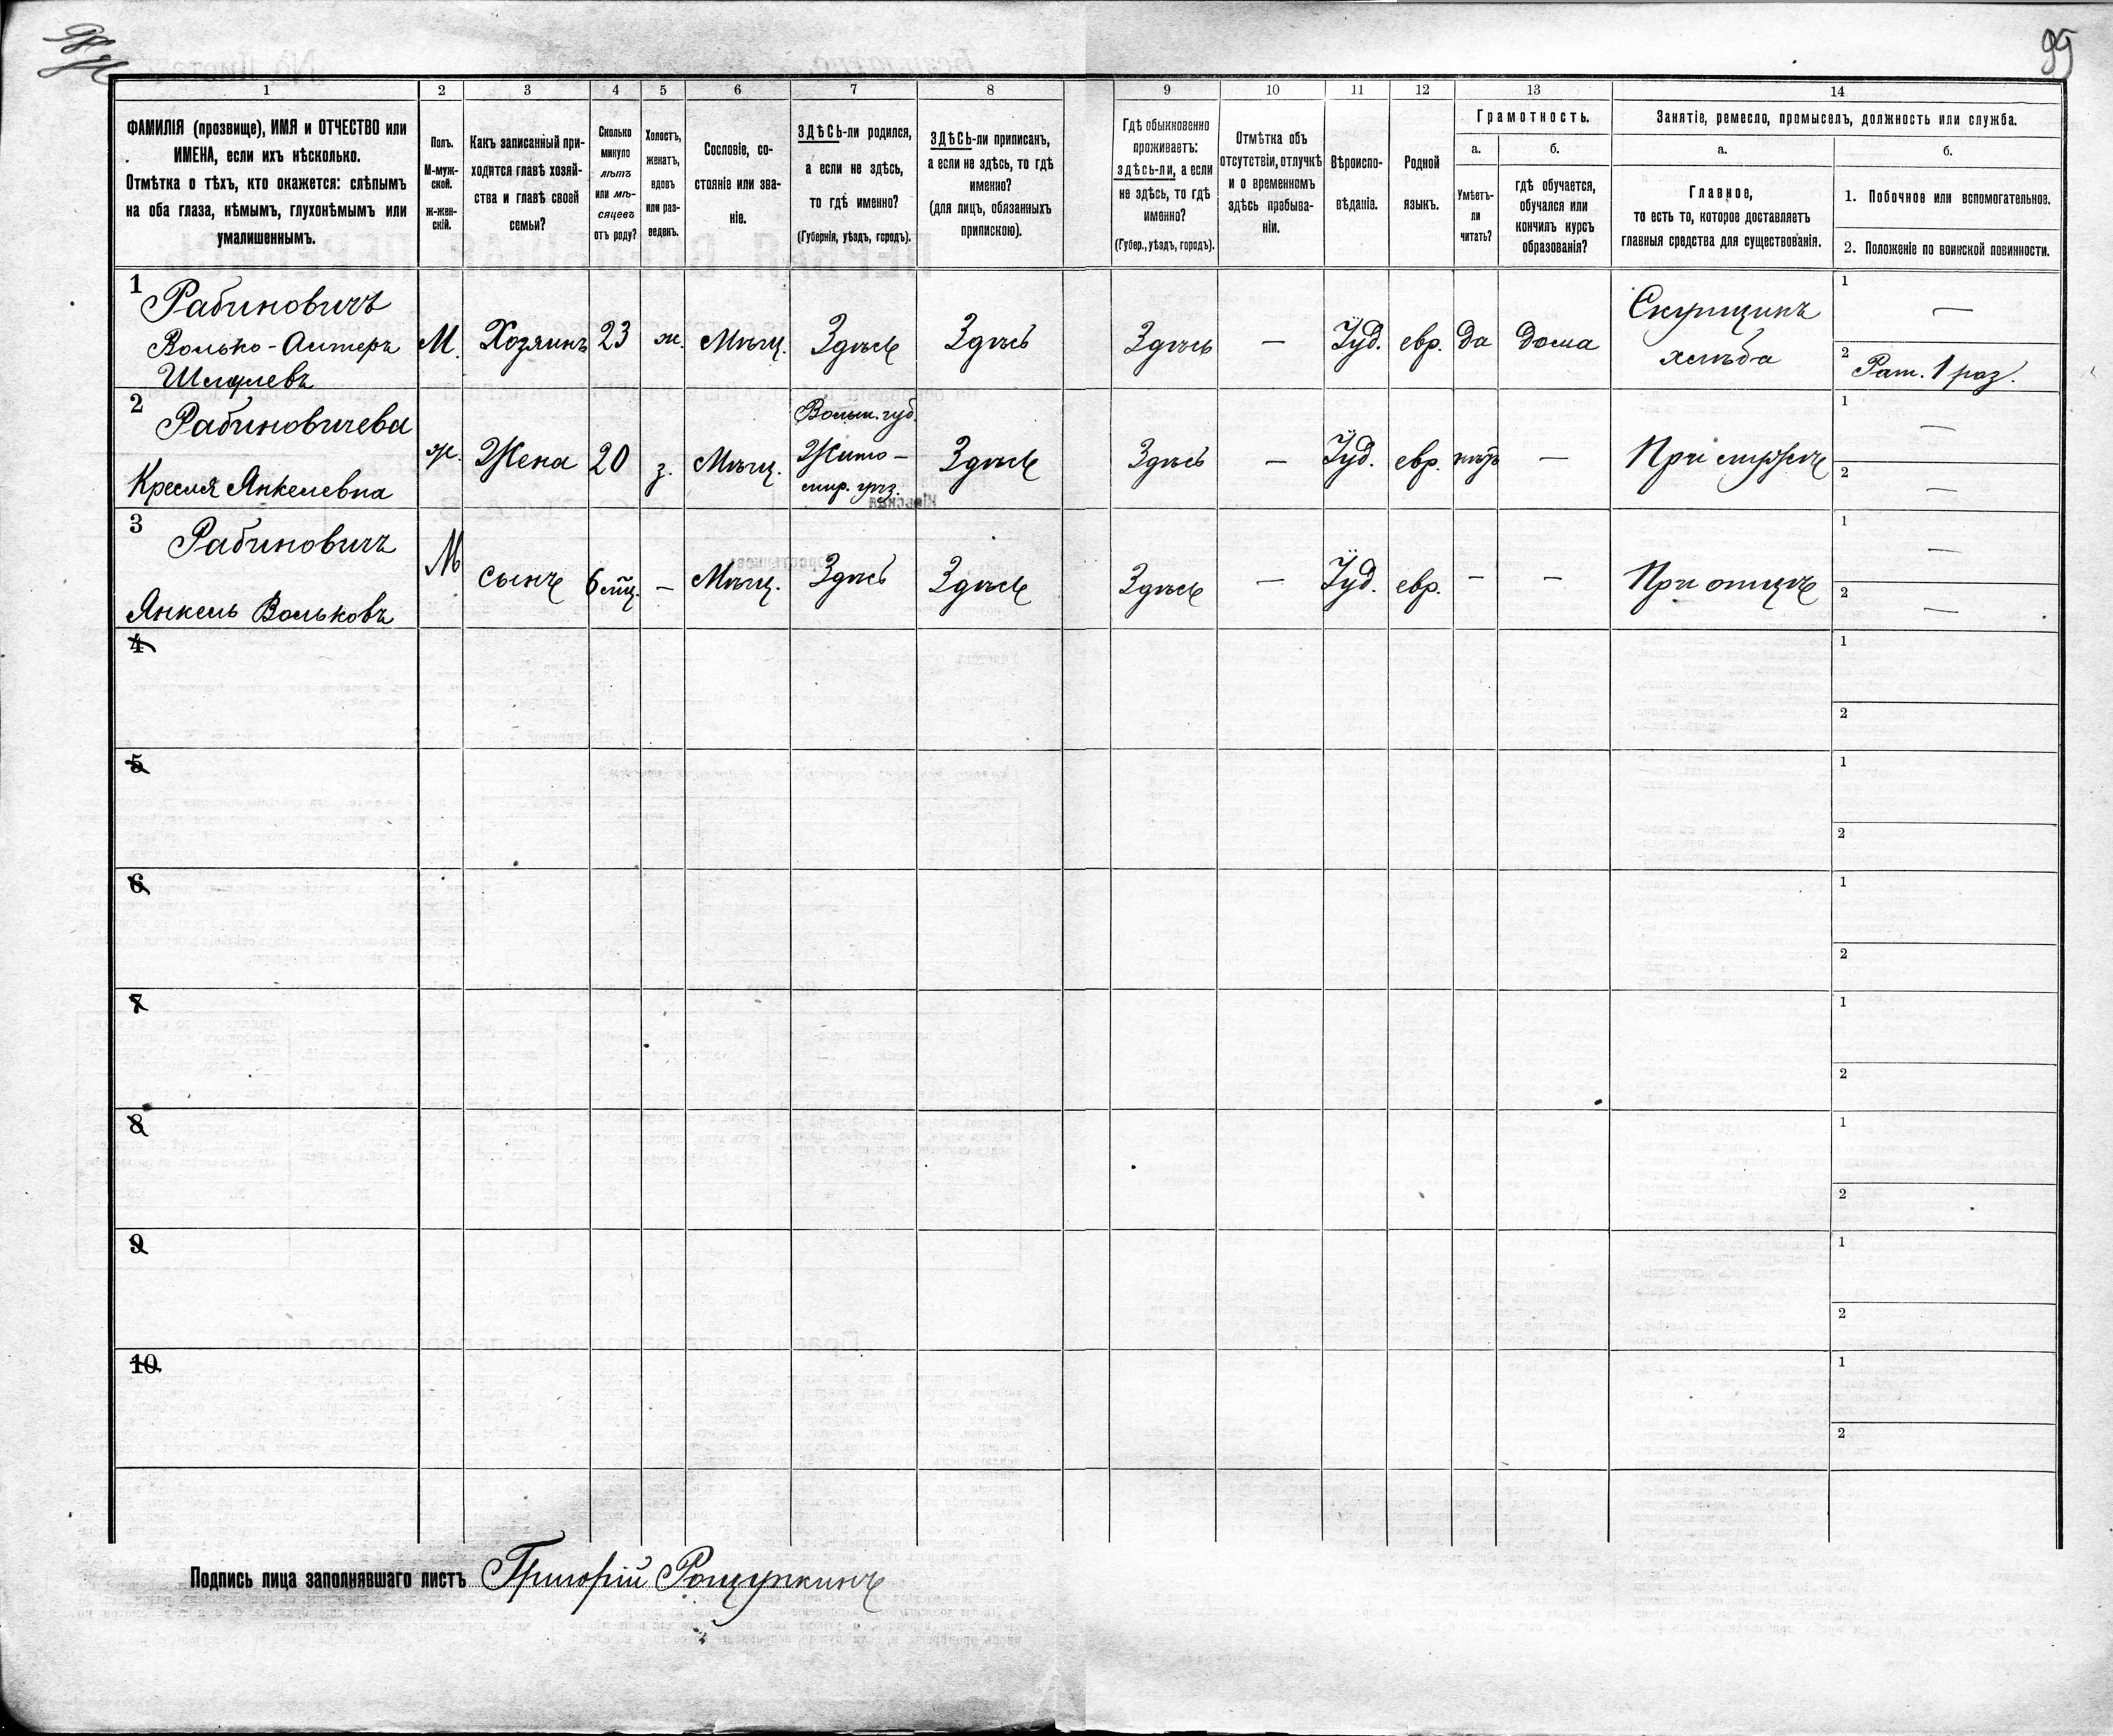 99
1
2
3
4
5
6
7
8
9
10
11
12
13
14
ФАМИЛІЯ (прозвище), ИМЯ и ОТЧЕСТВО или
ИМЕНА, если ихъ нѣсколько.
Отмѣтка о тѣхъ, кто окажется: слѣпымъ
на оба глаза, нѣмымъ, глухонѣмымъ или
умалишеннымъ.
Полъ.
М-муж-
ской.
ж-жен-
скій.
Какъ записанный при-
ходится главѣ хозяй-
ства и главѣ своей
семьи?
Сколько
минуло
лѣтъ
или мѣ-
сяцевъ
отъ роду?
Холостъ,
женатъ,
вдовъ
или раз-
веденъ.
Сословіе, со-
стояніе или зва-
ніе.
ЗДѢСЬ-ли родился,
а если не здѣсь,
то гдѣ именно?
(Губернія, уѣздъ, городъ).
ЗДѢСЬ-ли приписан,
а если не здѣсь, то гдѣ
именно?
(для лицъ, обязанныхъ
припискою).
Гдѣ обыкновенно
проживаетъ:
здѣсь-ли, а если
не здѣсь, то гдѣ
именно?
(Губер., уѣздъ, городъ).
Отмѣтка объ
отсутствіи, отлучкѣ
и о временномъ
здѣсь пребыва-
ніи.
Вѣроиспо-
вѣданіе.
Родной
языкъ.
Грамотность.
а.
Умѣетъ-
ли
читать?
б.
гдѣ обучается,
обучался или
кончилъ курсъ
образованія?
Занятіе, ремесло, промыселъ, должность или служба.
а.
Главное,
то есть то, которое доставляетъ
главныя средства для существованія.
б.
1. Побочное или вспомогательное.
2. Положеніе по воинской повинности.
1
Рабиновичъ
Волько-Аитеръ
Шмулевъ
М.
Хозяинъ
23
ж.
Мѣщ.
Здѣсь
Здѣсь
Здѣсь
—
Іуд.
евр.
Да
Дома
Скупщикъ
хлѣба
1
—
2
Рат. 1 раз.
2
Рабиновичева
Кресля Янкелевна
ж.
Жена
20
з.
Мѣщ.
Волын. губ.
Жито-
мир. уѣз.
Здѣсь
Здѣсь
—
Іуд.
евр.
нѣтъ
—
При мужѣ
1
—
2
—
3
Рабиновичъ
Янкель Вольковъ
М
сынъ
6 мц.
—
Мѣщ.
Здѣсь
Здѣсь
Здѣсь
—
Іуд.
евр.
—
—
При отцѣ
1
—
2
—
4
1
2
5
1
2
6
1
2
7
1
2
8
1
2
9
1
2
10
1
2
Подпись лица заполнявшаго листъ Григорій Рощупкинъ